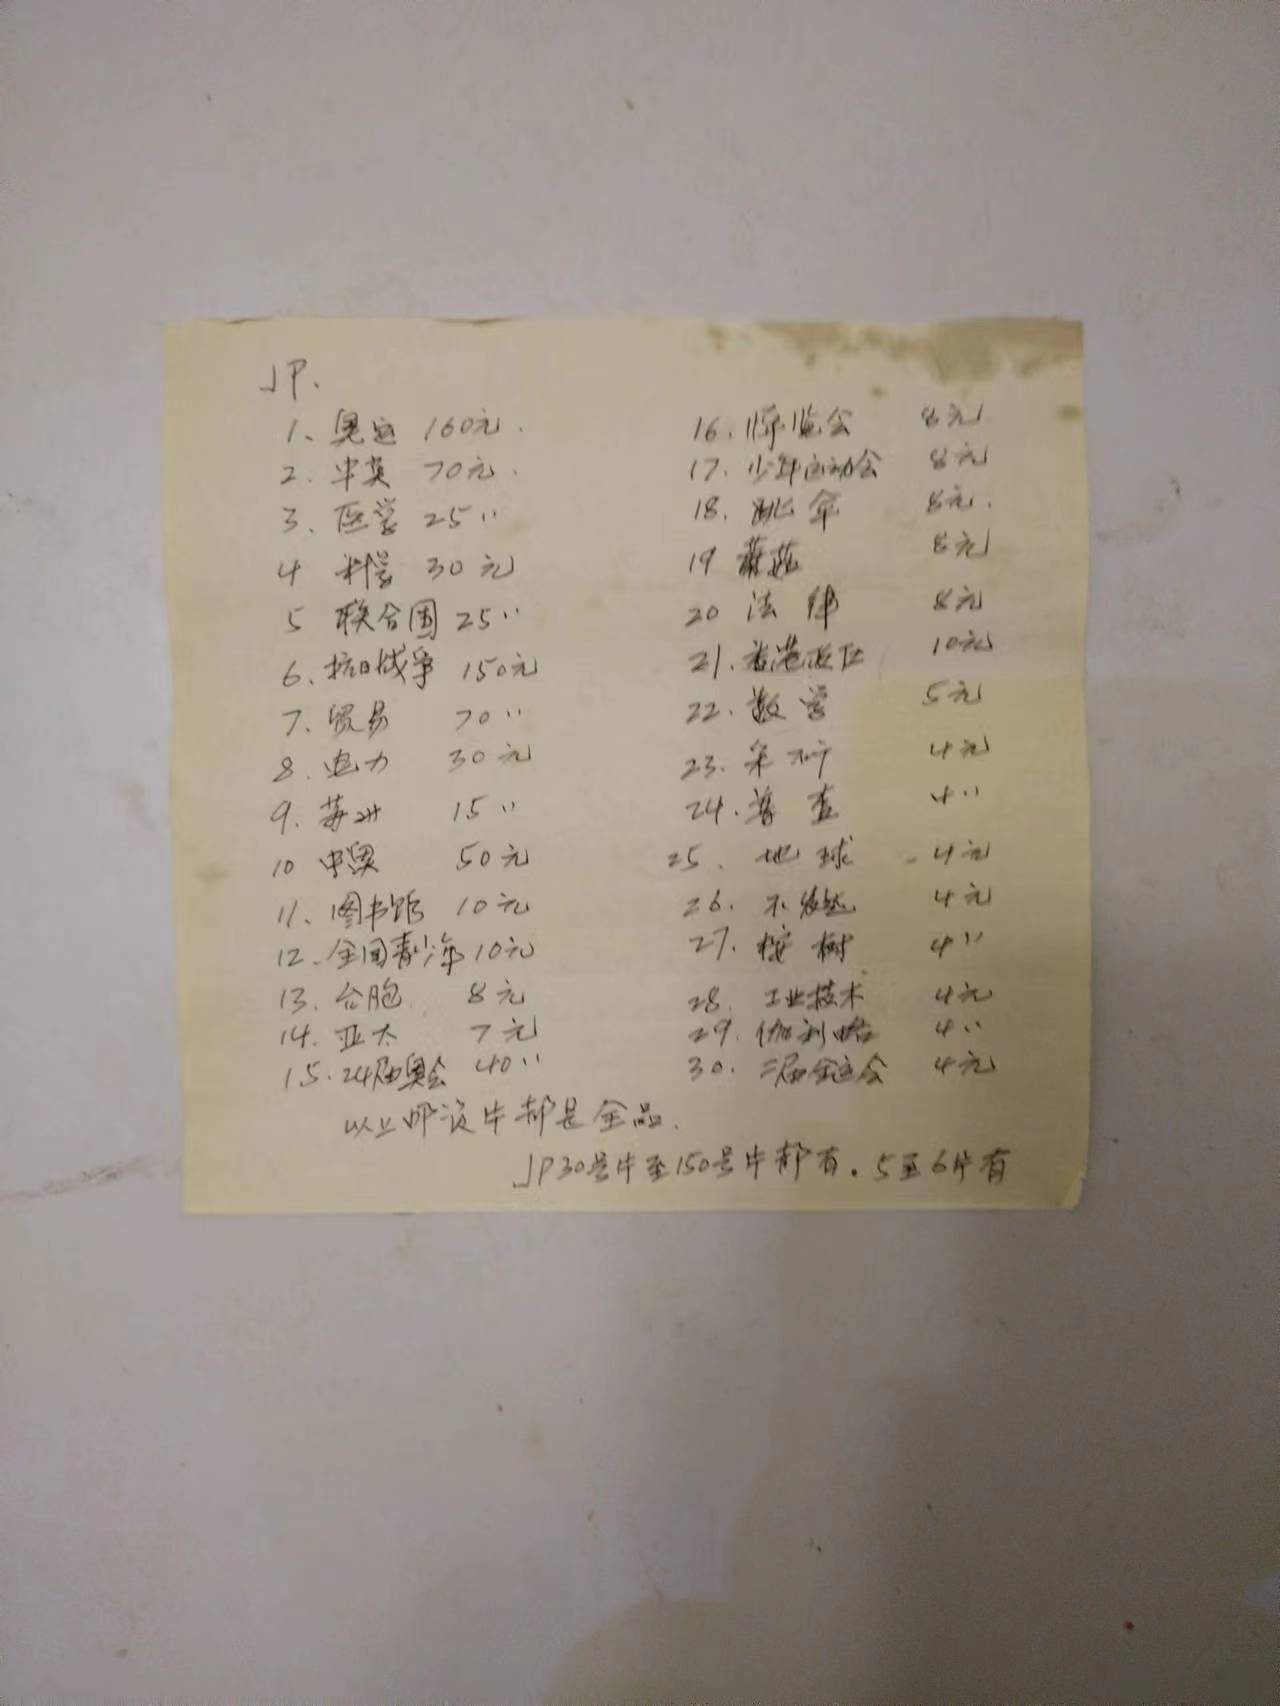 JP.
1、奥运 160元.
2. 中英 70元.
3. 医学 25〃
4 科学 30元
5 联合国 25〃
6. 抗日战争 150元
7. 贸易 70〃
8. 电力 30元
9. 苏州 15〃
10 中奥 50元
11、图书馆 10元
12.全国青少年 10元
13. 台胞 8元
14. 亚太 7元
15.24届奥会 40〃
16. 博览会 8元
17. 少年运动会 8元
18. 跳伞 8元.
19 蘑菇 8元
20 法律 8元
21. 香港 10元
22. 数学 5元
23. 采矿 4元
24. 普查 4〃
25、地球 4元
26. 不发达 4元
27. 桉树 4〃
28. 工业技术 4元
29. 伽利略 4〃
30. 二届全运会 4元
以上邮资片都是全品.
JP30号片至150号片都有. 5至6片有